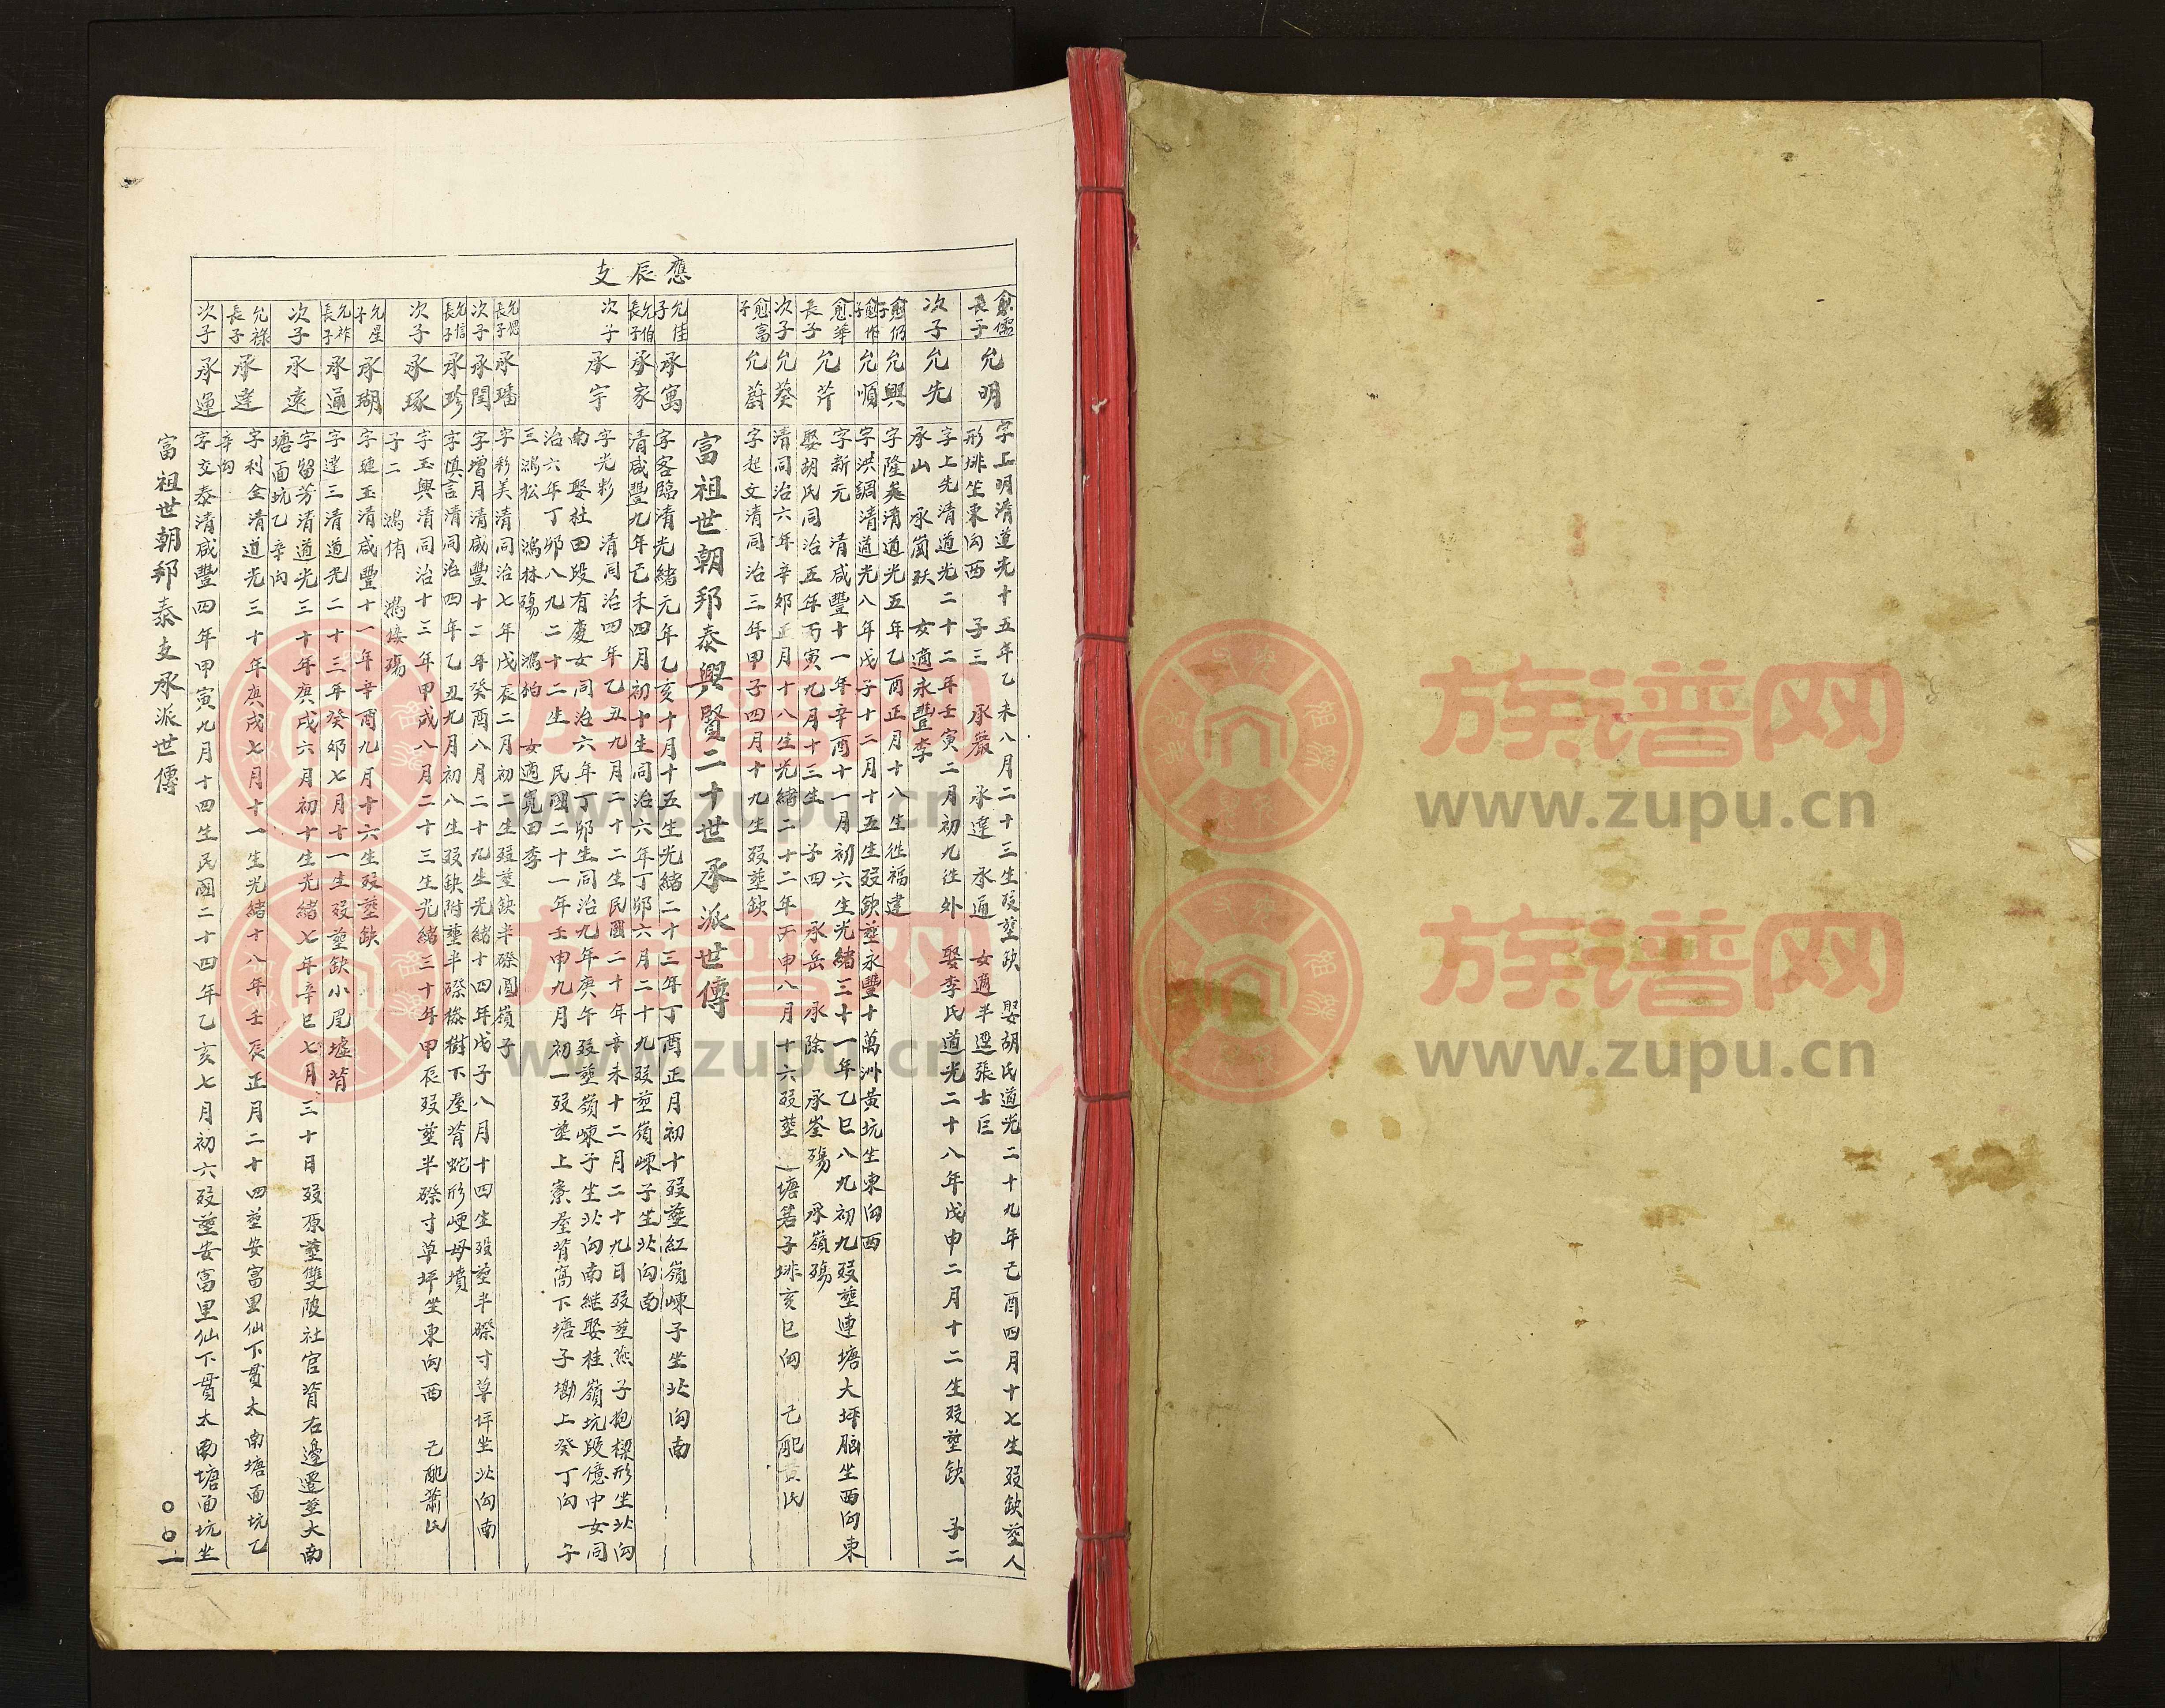 應辰支
愈儒長子 允明 字上明清道光十五年乙未八月二十三生殁塟缺 娶胡氏道光二十九年己酉四月十七生殁缺塟人
形排坐東向西 子三 承嚴 承達 承通 女適半逕張士巨
次子 允先 字上先清道光二十二年壬寅二月初九徃外 娶李氏道光二十八年戊申二月十二生殁塟缺 子二
承山 承崗殀 女適永豐李
愈仍子 允興 字隆美清道光五年乙酉正月十八生徃福建
愈作子 允順 字洪調清道光八年戊子十二月十五生殁缺塟永豐十萬洲黃坑坐東向西
愈華長子 允芹 字新元 清咸豐十一年辛酉十一月初六生光緒三十一年乙巳八九初九殁塟連塘大坪脳坐西向東
娶胡氏同治五年丙寅九月十三生 子四 承岳 承除 承崟殤 承嶺殤
次子 允葵 清同治六年辛卯正月十八生光緒二十二年丙申八月十六殁塟 塘 子排亥巳向 已配黃氏
愈富子 允蔚 字起文清同治三年甲子四月十九生殁塟缺
富祖世朝邦泰興賢二十世承派世傳
允佳子 承寓 字客臨清光緒元年乙亥十月十五生光緒二十三年丁酉正月初十殁塟紅嶺崠子坐北向南
允伯長子 承家 清咸豐九年己未四月初十生同治六年丁卯六月二十九殁塟嶺崠子坐北向南
次子 承宇 字光彩 清同治四年乙丑九月二十二生民國二十年辛未十二月二十九日殁塟燕子抱樑形坐北向
南 娶社田段有慶女同治六年丁卯生同治九年庚午殁塟嶺崠子坐北向南継娶桂嶺坑段億中女同
治六年丁卯八九二十二生 民國二十一年壬申九月初一殁塟上寮屋背窩下塘子墈上癸丁向 子
三 鴻松 鴻林殤 鴻柏 女適寬田李
長子 承璠 字彩美清同治七年戊辰二月初二生殁塟缺半磜圓嶺子
次子 承閏 字增月清咸豐十二年癸酉八月二十九生光緒十四年戊子八月十四生殁塟半磜寸草坪坐北向南
允信長子 承珍 字慎言清同治四年乙丑九月初八生殁缺附塟半磜樹下屋背蛇形峎母墳
次子 承琢 字玉興清同治十三年甲戌八月二十三生光緒三十年甲辰殁塟半磜寸草坪坐東向西 已配蕭氏
子二 鴻侑 鴻 殤
允星子 承瑚 字璉玉清咸豐十一年辛酉九月十六生殁塟缺
允祚長子 承通 字達三清道光二十三年癸卯七月十一生殁塟缺小尾墟背
次子 承遠 字留芳清道光三十年庚戌六月初十生光緒七年辛巳七月三十日殁原塟雙陂社官背右邊遷塟大南
塘面坑乙辛向
允祿長子 承達 字利全清道光三十年庚戌七月十一生光緒十八年壬辰正月二十四塟安富里仙下貫太南塘面坑乙
辛向
次子 承運 字交泰清咸豐四年甲寅九月十四生民國二十四年乙亥七月初六殁塟安富里仙下貫太南塘面坑坐
富祖世朝邦泰支承派世傳
〇〇一
族谱网
www.zupu.cn
族谱网
www.zupu.cn
族谱网
www.zupu.cn
族谱网
www.zupu.cn